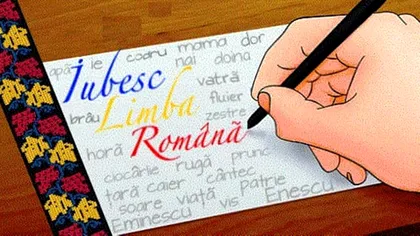 codru mama dor
apă ie nai doina
Iubesc vatră
Limba fluier
brâu zestre
Română
horă
ciocârlie rugă prunc
țară caier cântec
soare viață patrie
Eminescu vis Enescu